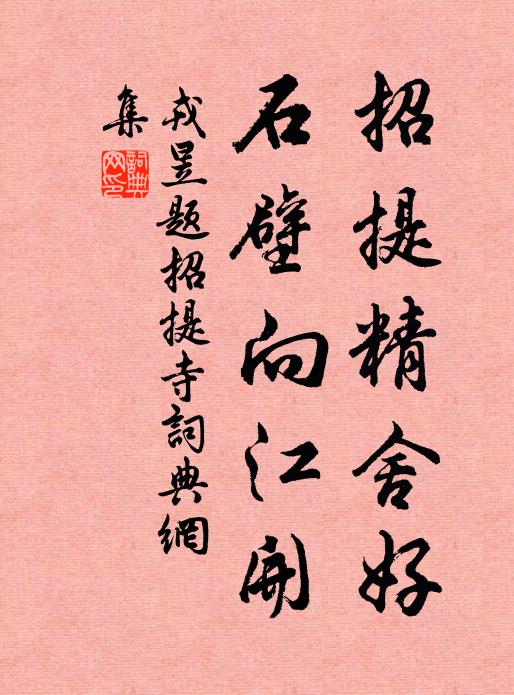 招提精舍好
石壁向江開
戎昱題招提寺詞典網
集
詞典網印